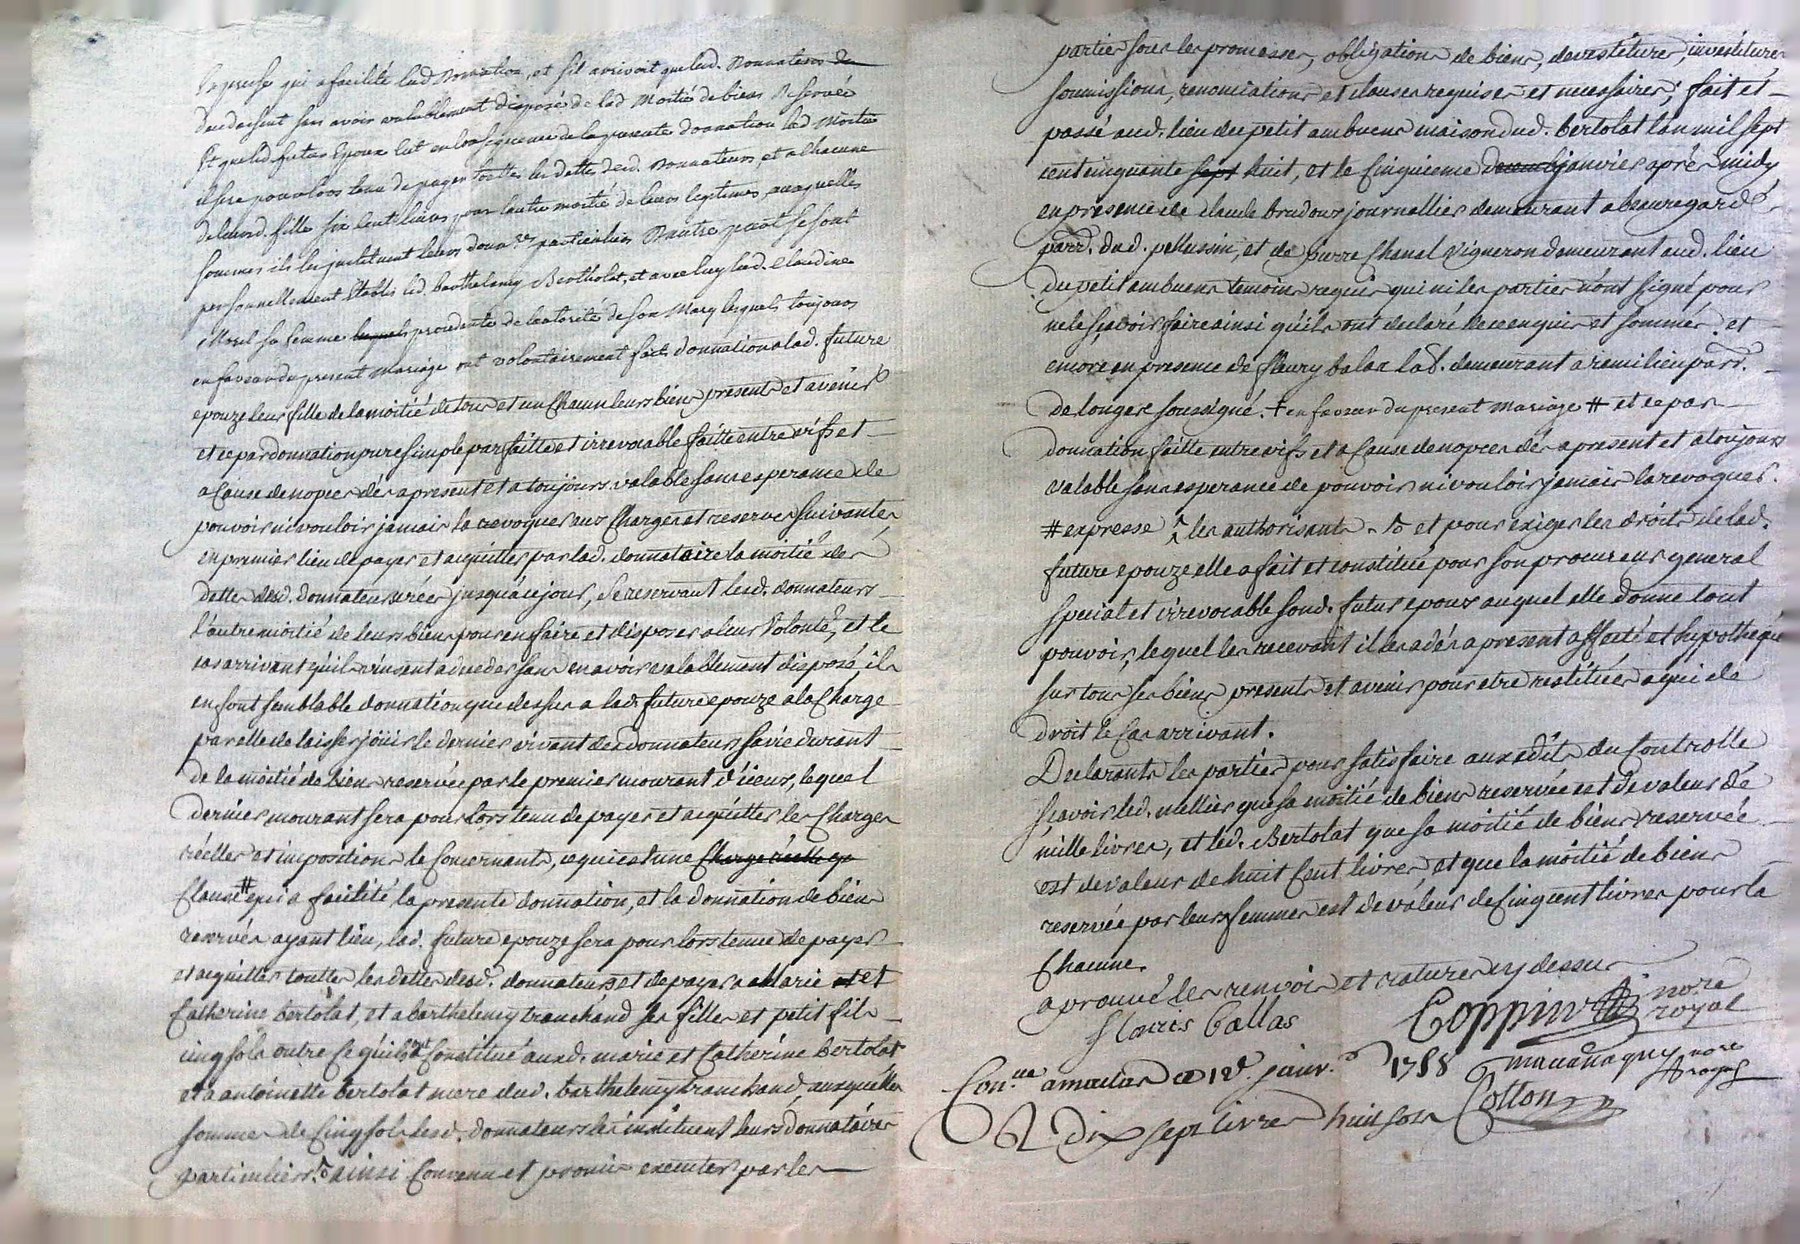 expresse qui a facilité lad. donnation, et s'il arrivoit que lesd. donnateurs
decedassent sans avoir valablement disposé de lad. moitié de biens reservée
et que led. futur epoux eut en consequence de la presente donnation lad. moitié
il sera pour lors tenu de payer touttes les dettes desd. donnateurs, et a chacune
de leursd. filles six cent livres pour leutre moitié de leurs legitimes, auxquelles
sommes ils les instituent leurs donares particulieres D'autre part se sont
personnellement etablis led. barthelemy Bertholat, et avec luy lad. Claudine
Morel sa femme lequels procedante de l'autorité de son Mary lesquels toujours
en faveur du present mariage ont volontairement fait donnation a lad. future
epouze leur fille de la moitié de tous et un chacun leurs biens presents et avenir
et ce par donnation pure simple parfaitte et irrevocable faitte entre vifs et
a Cause de nopces dès a present et a toujours valable sans esperance de
pouvoir ni vouloir jamais la revoquer aux Charges et reserves suivantes
en premier lieu de payer et acquitter par lad. donnataire la moitié des
dettes desd. donnateurs créées jusqu'à ce jour, se reservant lesd. donnateurs
l'autre moitié de leurs biens pour en faire et disposer a leur volonté, et le
cas arrivant qu'ils vinsent a deceder sans en avoir valablement disposé, ils
en font semblable donnation que dessus a lad. future epouze a la Charge
par elle de laisser joüir le dernier vivant des donnateurs sa vie durant
de la moitié de biens reservée par le premier mourant d'iceux, lequel
dernier mourant sera pour lors tenu de payer et acquitter les Charges
réelles et impositions le Concernants, ce qui est une Charge réelle qu
Clause # qui a facilité la presente donnation, et la donnation de biens
reservés ayant lieu, lad. future epouze sera pour lors tenüe de payer
et acquitter touttes les dettes desd. donnateurs et de payer a Marie et et
Catherine bertolat, et a barthelemy tranchand ses filles et petit fils
cinq sols outre ce qu'ils ont Constitué auxd. marie et Catherine bertolat
et a antoinette bertolat mere dud. barthelemy tranchand, auxquelles
sommes de Cinq sols lesd. donnateurs les instituent leurs donnatáires
particuliers. ainsi Convenu et promis executer par les
parties sous les promesses, obligations de biens, devestitures, investitures
soumissions, renonciations et clauses requises et necessaires; fait et
passé aud. lieu du petit ambuens maison dud. bertolat l'an mil sept
cent cinquante sept huit, et le Cinquieme decemb janvier après midy
en presence de claude brudoux journallier demeurant a beauregard
parr. dud. pellussin, et de pierre Chanal vigneron demeurant aud. lieu
du petit ambuens temoins requis qui ni les parties n'ont signé pour
ne le sçavoir faire ainsi qu'ils ont declaré de ce enquis et sommés. et
encore en presence de fleury balas lab. demeurant a remilieu parr.
de longes soussigné. + en faveur du present mariage # et ce par
donnation faitte entre vifs et a Cause de nopces dès a present et a toujours
valable sans esperance de pouvoir ni vouloir jamais la revoquer.
# expresse ^ les authorisants et pour exiger les droits de lad.
future epouze elle a fait et constitué pour son procureur general
special et irrevocable sond. futur epoux auquel elle donne tout
pouvoir, lequel les recevant il les a dès a present affecté et hypothequé
sur tous ses biens presents et avenir pour etre restitués a qui de
droit le Cas arrivant.
Declarants les parties pour satisfaire aux edits du Controlle
sçavoir led. mellier que sa moitié de biens reservée est de valeur de
mille livres, et led. Bertolat que sa moitié de biens reservée
est de valeur de huit Cent livres et que la moitié de biens
reservée par leurs femmes est de valeur de Cinq cent livres pour la
Chacune.
aprouvé les renvois et ratures cy dessus
flouris Ballas
Coppin nore royal
Con.lle a ce 12e janv. 1758 nore royal
R dix sept livres huit sols Cotton